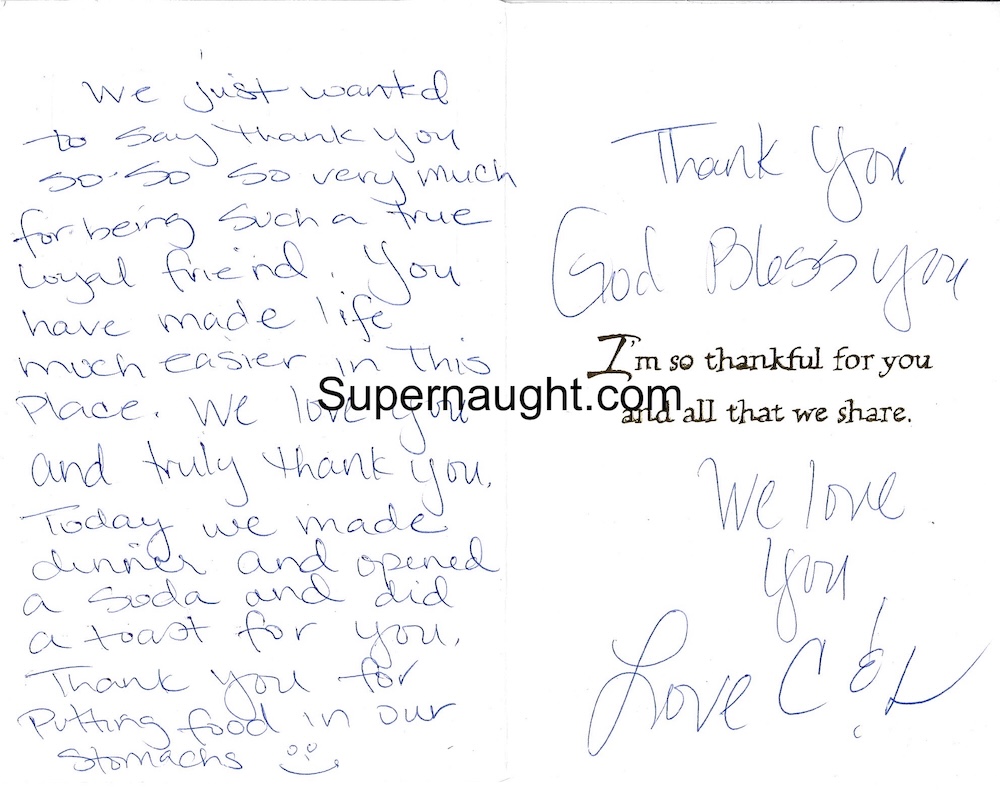 We just wantd
to say thank you
so-so so very much
for being such a true
loyal friend. You
have made life
much easier in this
place. We love you
and truly thank you.
Today we made
dinner and opened
a soda and did
a toast for you.
Thank you for
putting food in our
stomachs
Thank You
God Bless you
I'm so thankful for you
and all that we share.
We love
you
Love C & L
Supernaught.com